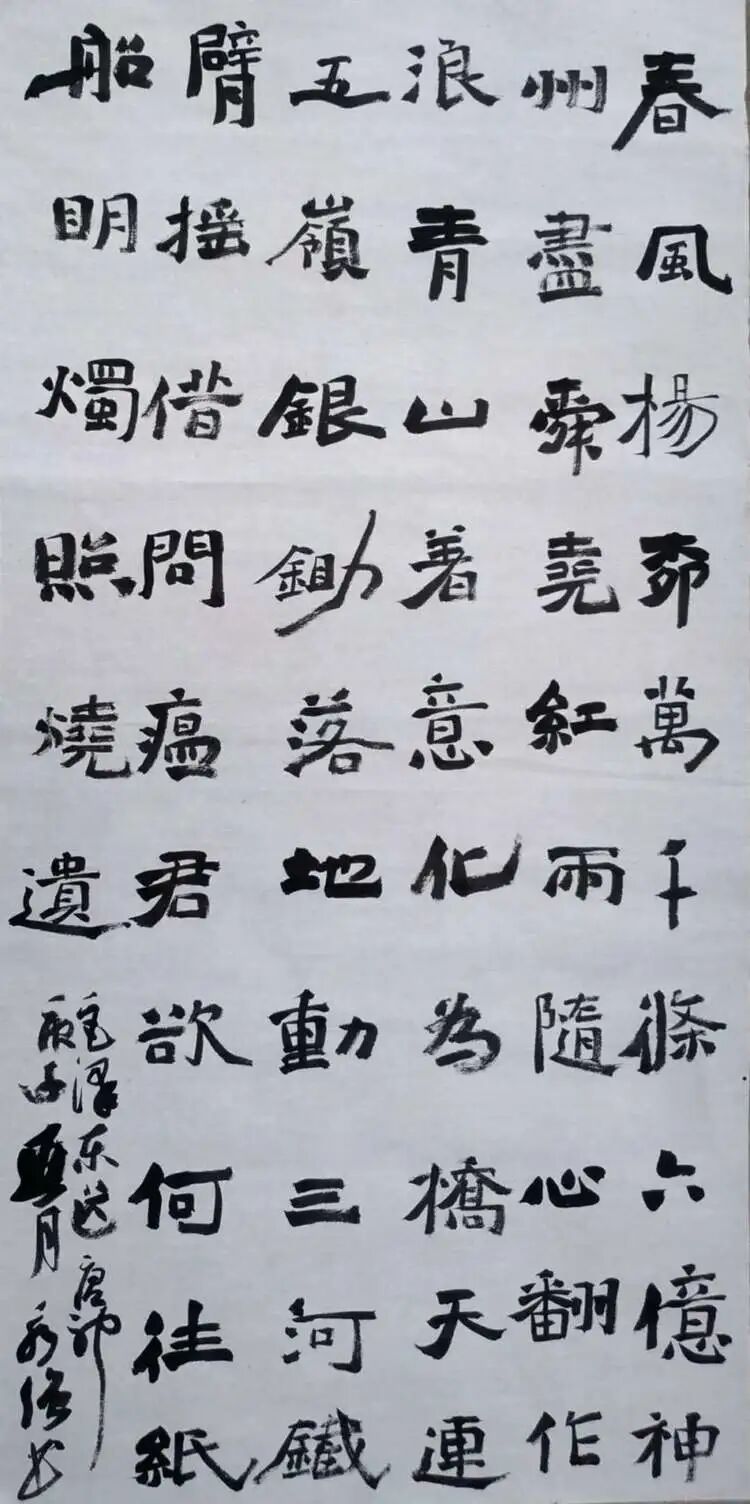 春風楊柳萬千條六億神
州盡舜堯紅雨隨心翻作
浪青山着意化為橋天連
五嶺銀鋤落地動三河鐵
臂摇借問瘟君欲何往紙
船明燭照燒遺
毛澤东送神
庚子夏月书